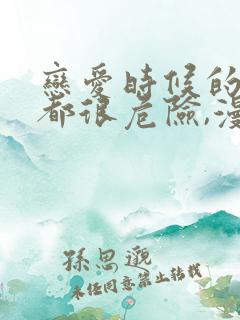 戀愛時候的
都很危險,漫
孫思邈
未經同意禁止轉載